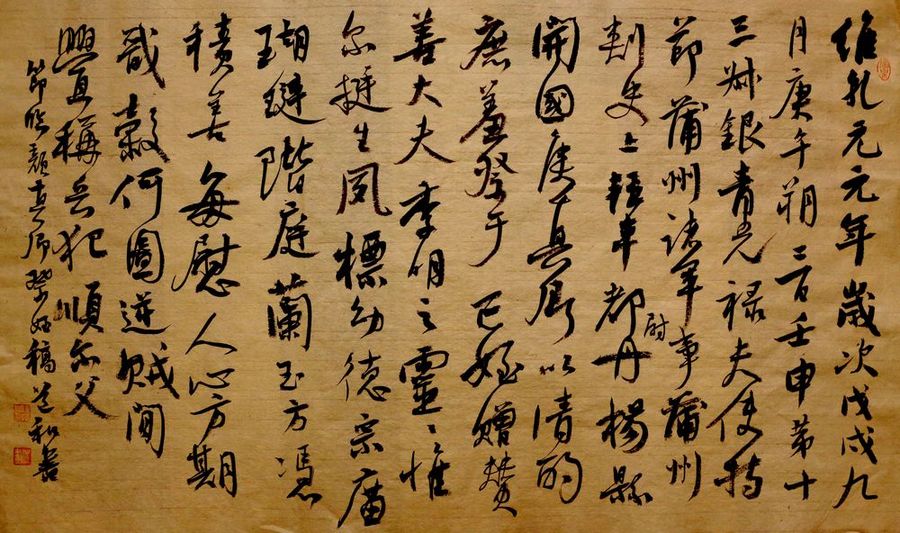 維乾元元年歲次戊戌九
月庚午朔三日壬申第十
三叔銀青光禄夫使持
節蒲州諸軍事蒲州
刺史上輕車都尉丹楊縣
開國侯真卿以清酌
庶羞祭于亡姪贈贊
善大夫季明之靈〻惟
尔挺生夙標幼德宗廟
瑚璉階庭蘭玉方憑
積善每慰人心方期
戩穀何圖逆賊間
釁稱兵犯順尔父
節臨顏真卿祭姪稿 和書